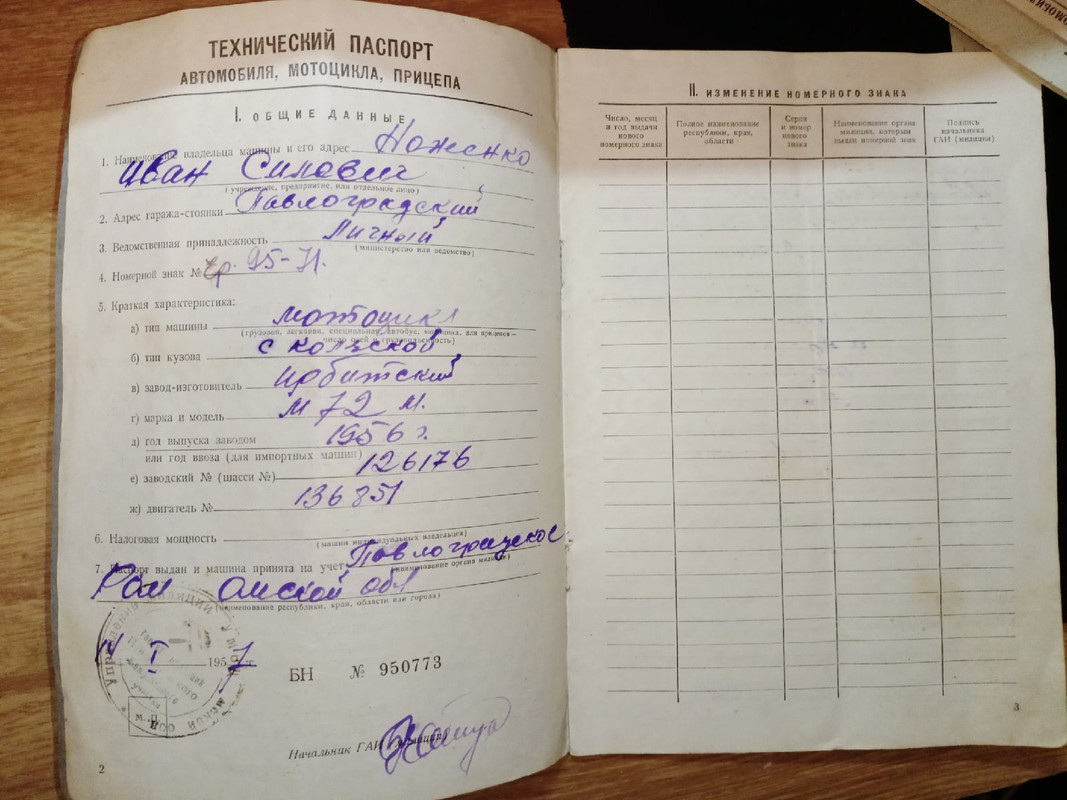 ТЕХНИЧЕСКИЙ ПАСПОРТ
АВТОМОБИЛЯ, МОТОЦИКЛА, ПРИЦЕПА
I. ОБЩИЕ ДАННЫЕ
1. Наименование владельца машины и его адрес Ноженко
Иван Силович
(учреждение, предприятие, или отдельное лицо)
2. Адрес гаража-стоянки Павлоградский
3. Ведомственная принадлежность Личный
(министерство или ведомство)
4. Номерной знак № 95-71.
5. Краткая характеристика:
а) тип машины мотоцикл
(грузовая, легковая, специальная, автобус, мотоцикл, для прицепов—
число осей и грузоподъемность)
б) тип кузова с коляской
в) завод-изготовитель Ирбитский
г) марка и модель М 72 М.
д) год выпуска заводом 1956 г.
или год ввоза (для импортных машин)
е) заводский № (шасси №) 126176
ж) двигатель № 136851
6. Налоговая мощность
(машин индивидуальных владельцев)
7. Паспорт выдан и машина принята на учет Павлоградское
(наименование органа милиции)
РОМ Омской обл
(наименование республики, края, области или города)
I 1957 г.
БН № 950773
М. П.
Начальник ГАИ (милиции)
2
II. ИЗМЕНЕНИЕ НОМЕРНОГО ЗНАКА
Число, месяц и год выдачи нового номерного знака
Полное наименование республики, края, области
Серия и номер нового знака
Наименование органа милиции, которым выдан номерной знак
Подпись начальника ГАИ (милиции)
3